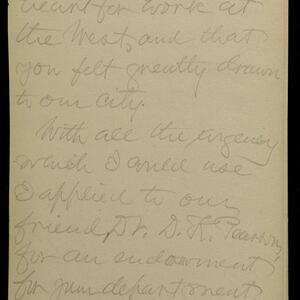 heart for work at
the West, and that
you felt greatly drawn
to our city.
With all the urgency
which I could use
I applied to our
friend, Dr. D. K. Pearsons,
for an endowment
for your department